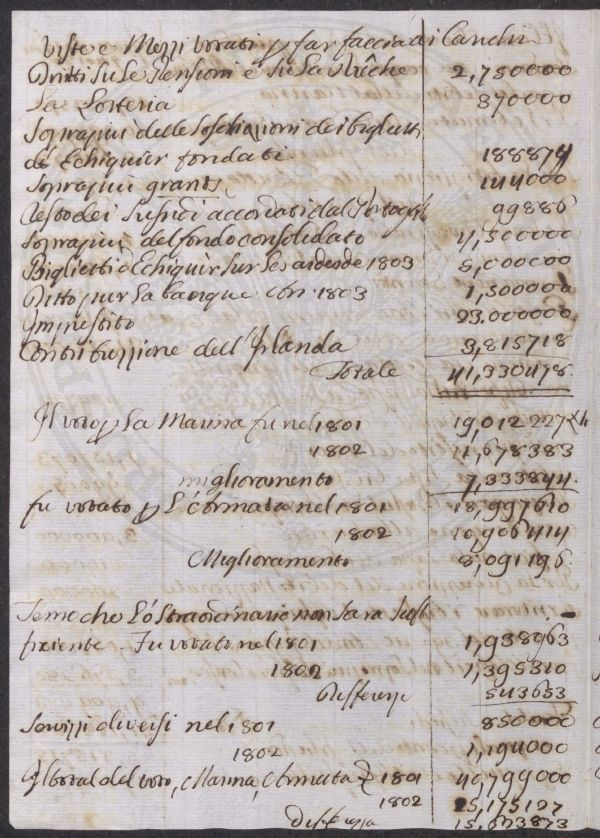 Viste e Mezzi votati p far faccia di Carichi
Dritti su le Pensioni e su la Drêche 2,750000
La Lotteria 370000
Soprapiui delle Soscrizzioni dei biglietti
de Echiquier fondati 188874
Soprapiui grants 144000
Resto dei Sussidi accordati dal Portogallo 99886
Soprapiui del fondo consolidato 4,500000
Biglietti d'Echiquier sur les aides de 1803 5,000000
Ditto pur la banque em. 1803 1,500000
Imprestito 23.000000
Contribuzzione dell Irlanda 3,815718
Totale 41,330478
Il voto p La Marina fu nel 1801 19,012227
1802 11,678383
miglioramento 7,333844
fu votato p L'Armata nel 1801 18,997610
1802 10,906414
Miglioramento 8,091196
Temo che Lo Straordinario non sara suffi
ziente. Fu votato nel 1801 1,938963
1802 1,395310
Differenze 543653
Servizzi diversi nel 1801 850000
1802 1,194000
Il total del voto, Marina, Armata & 1801 40,799000
1802 25,175127
Differenza 15,623873